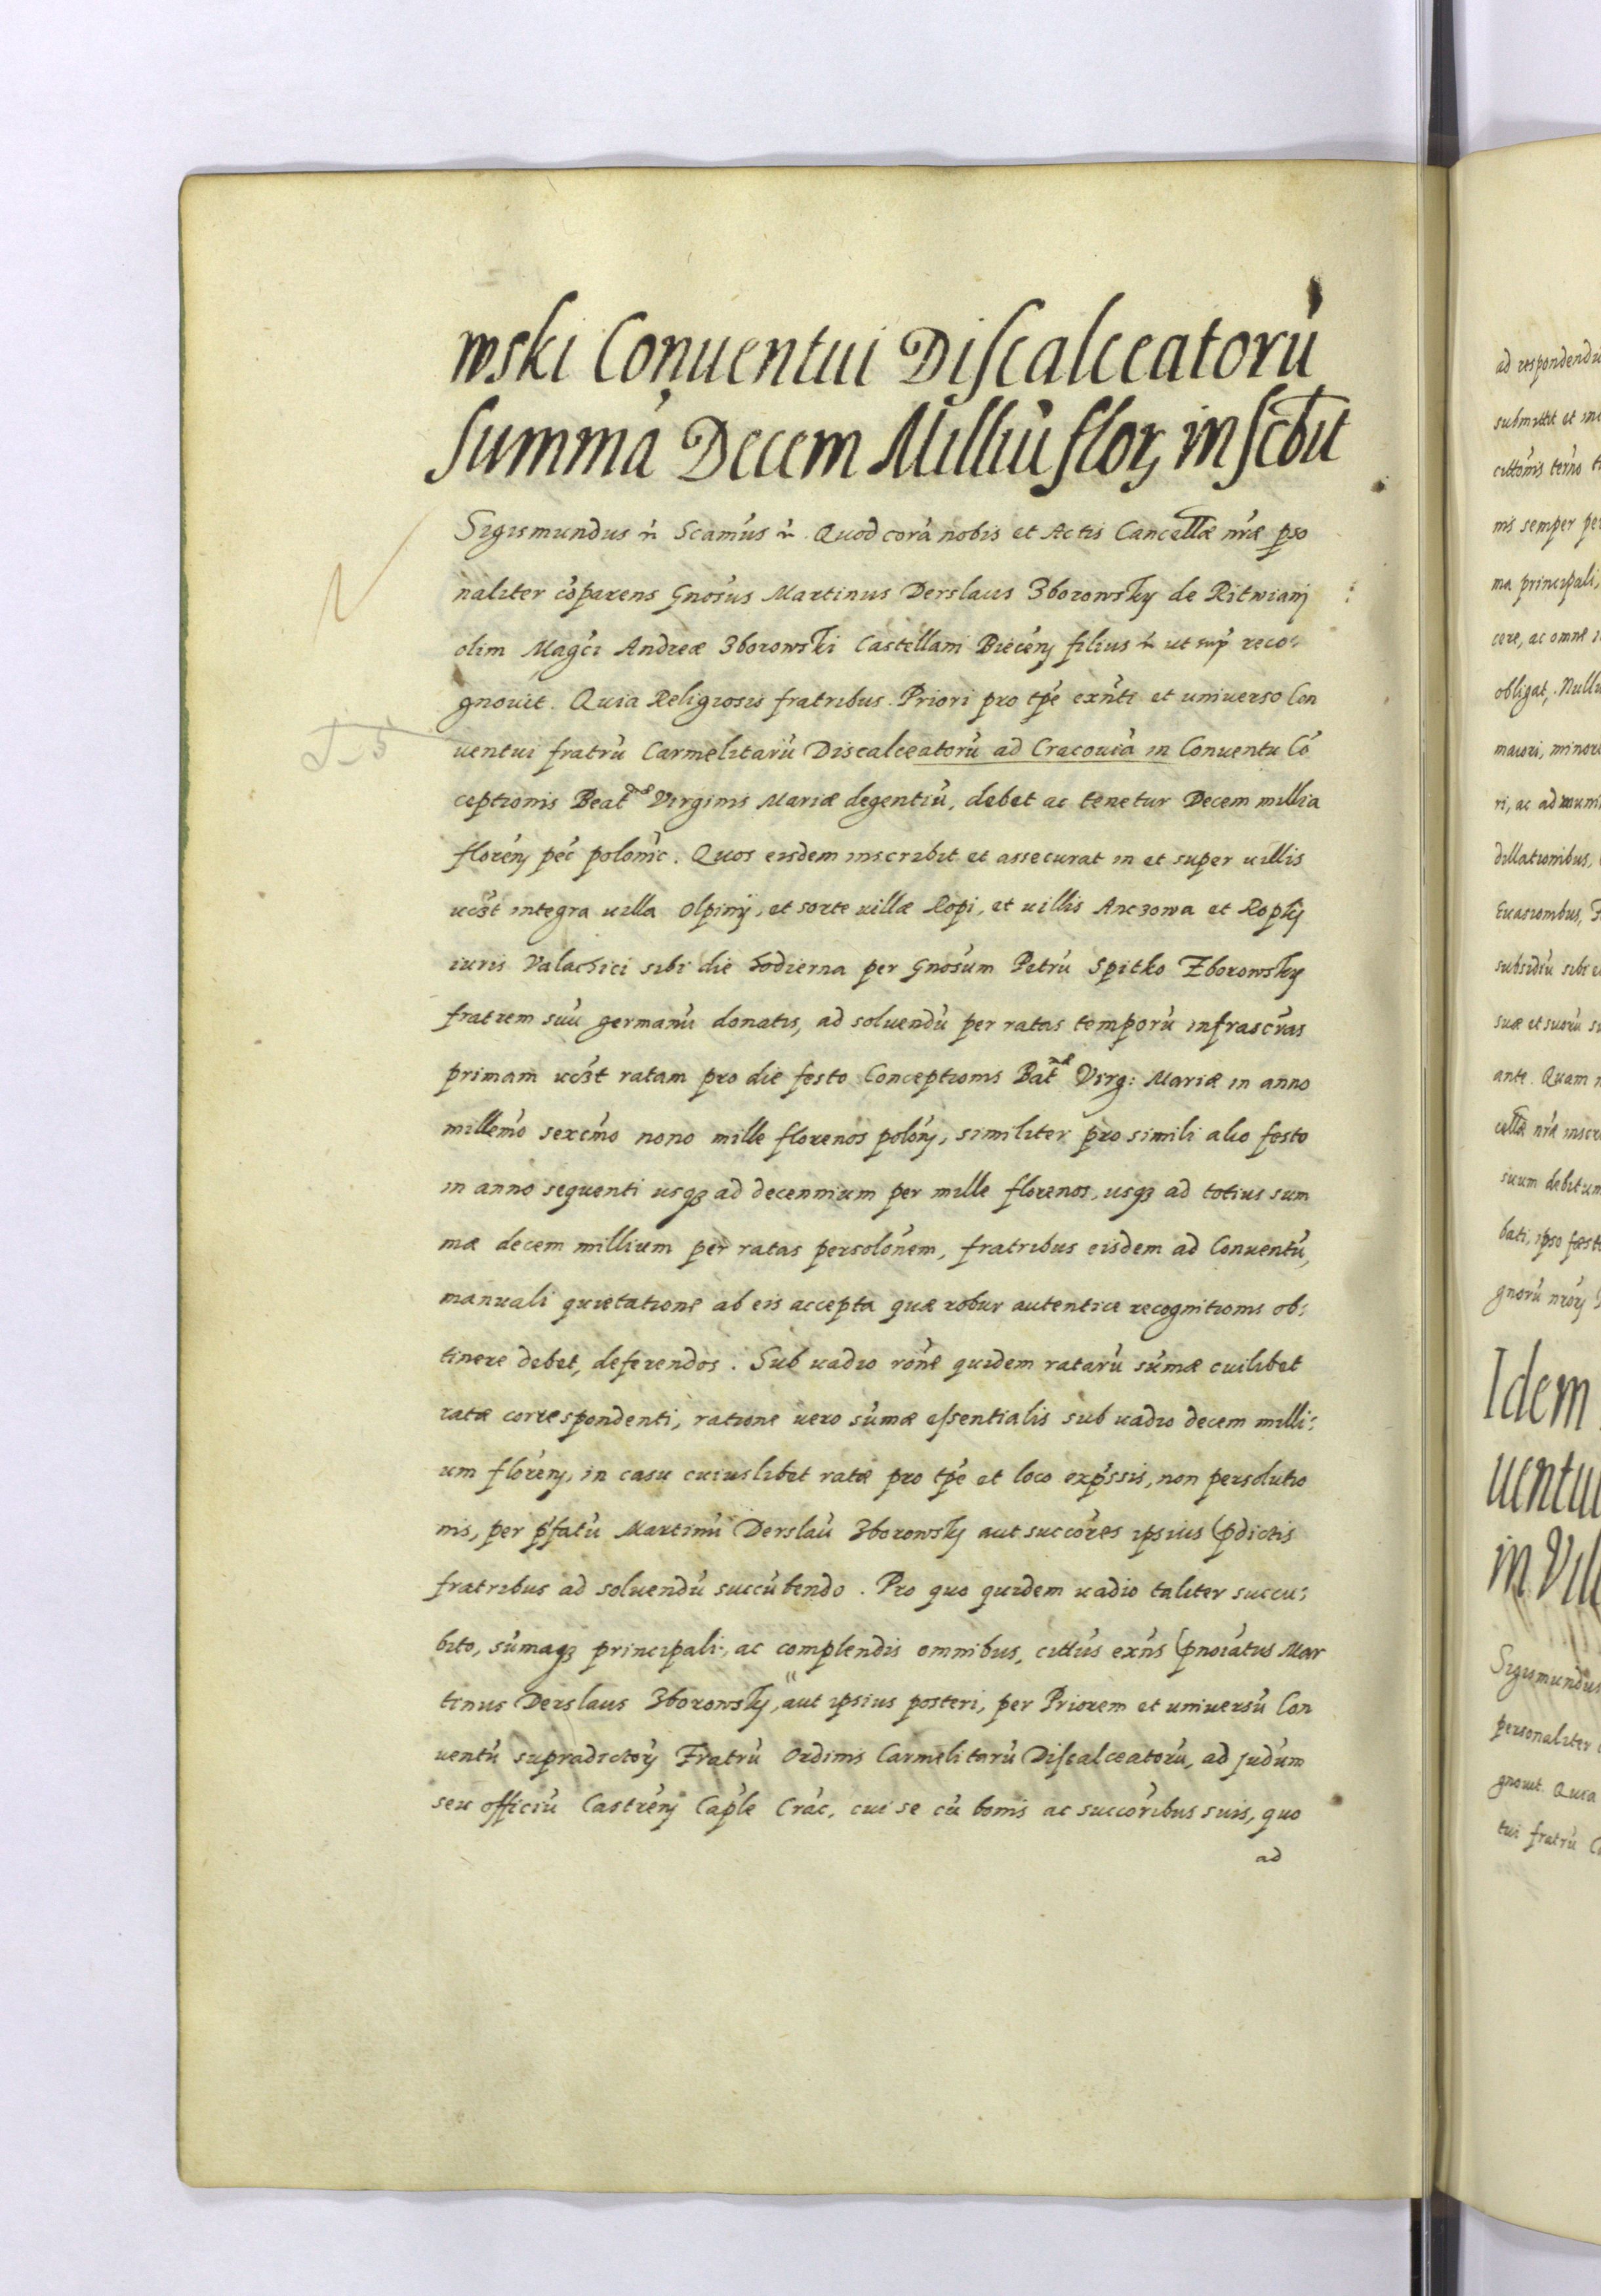 wski Conuentui Discalceatorū
Summā Decem Milliū flor, inscbit
Sigismundus etc. Scamus etc. Quod corā nobis et Actis Cancellæ nræ pso
naliter cōparens Gnosus Martinus Derslaus Zborowsky de Ritwianj
olim Magci Andreæ Zborowski Castellani Biecen filius etc. ut sup reco:
gnouit. Quia Religiosis fratribus Priori pro tpe exnti et uniuerso Con
uentui fratrū Carmelitarū Discalceatorū ad Cracouiā in Conuentu Cō
ceptionis Beatnæ Virginis Mariæ degentiū, debet ac tenetur Decem millia
floren pec polonic. Quos eisdem inscribit et assecurat in et super uillis
uczt integra uilla Olpinÿ, et sorte uillæ Ropi, et uillis Anczowa et Ropky
iuris Valachici sibi die hodierna per Gnosum Petrū Spitko Zborowsky
fratrem suū germanū donatis, ad soluendū per ratas temporū infrascras
primam uczt ratam pro die festo Conceptionis Batnæ Virg: Mariæ in anno
millemo sexcmo nono mille florenos polon, similiter pro simili alio festo
in anno sequenti usqz ad decennium per mille florenos, usqz ad totius sum
mæ decem millium per ratas persolonem, fratribus eisdem ad Conuentū,
manuali quietatione ab eis accepta quæ robur autenticæ recognitionis ob:
tinere debet, deferendos. Sub uadio rone quidem ratarū sumæ cuilibet
ratæ correspondenti, ratione uero sumæ essentialis sub uadio decem milli:
um floren, in casu cuiuslibet ratæ pro tpe et loco expssis, non persolutio
nis, per pfatū Martinū Derslaū Zborowsky aut succores ipsius pdictis
fratribus ad soluendū succūbendo. Pro quo quidem uadio taliter succu:
bito, sumaqz principali, ac complendis omnibus, cittus exns pnoiatus Mar
tinus Derslaus Zborowsky, aut ipsius posteri, per Priorem et uniuersū Con
uentū supradictor Fratrū Ordinis Carmelitarū Discalceatorū, ad judum
seu officiū Castren Caple Crac, cui se cū bonis ac succoribus suis, quo
ad
ad respondendū
ma principali,
cere, ac omne
obligat, Null
maiori, minori
dillationibus,
suæ et suorū
ante. Quam
suum debitum
Idem
uentui
in Vill
Sigismundus
personaliter
gnouit. Quia
tui fratrū